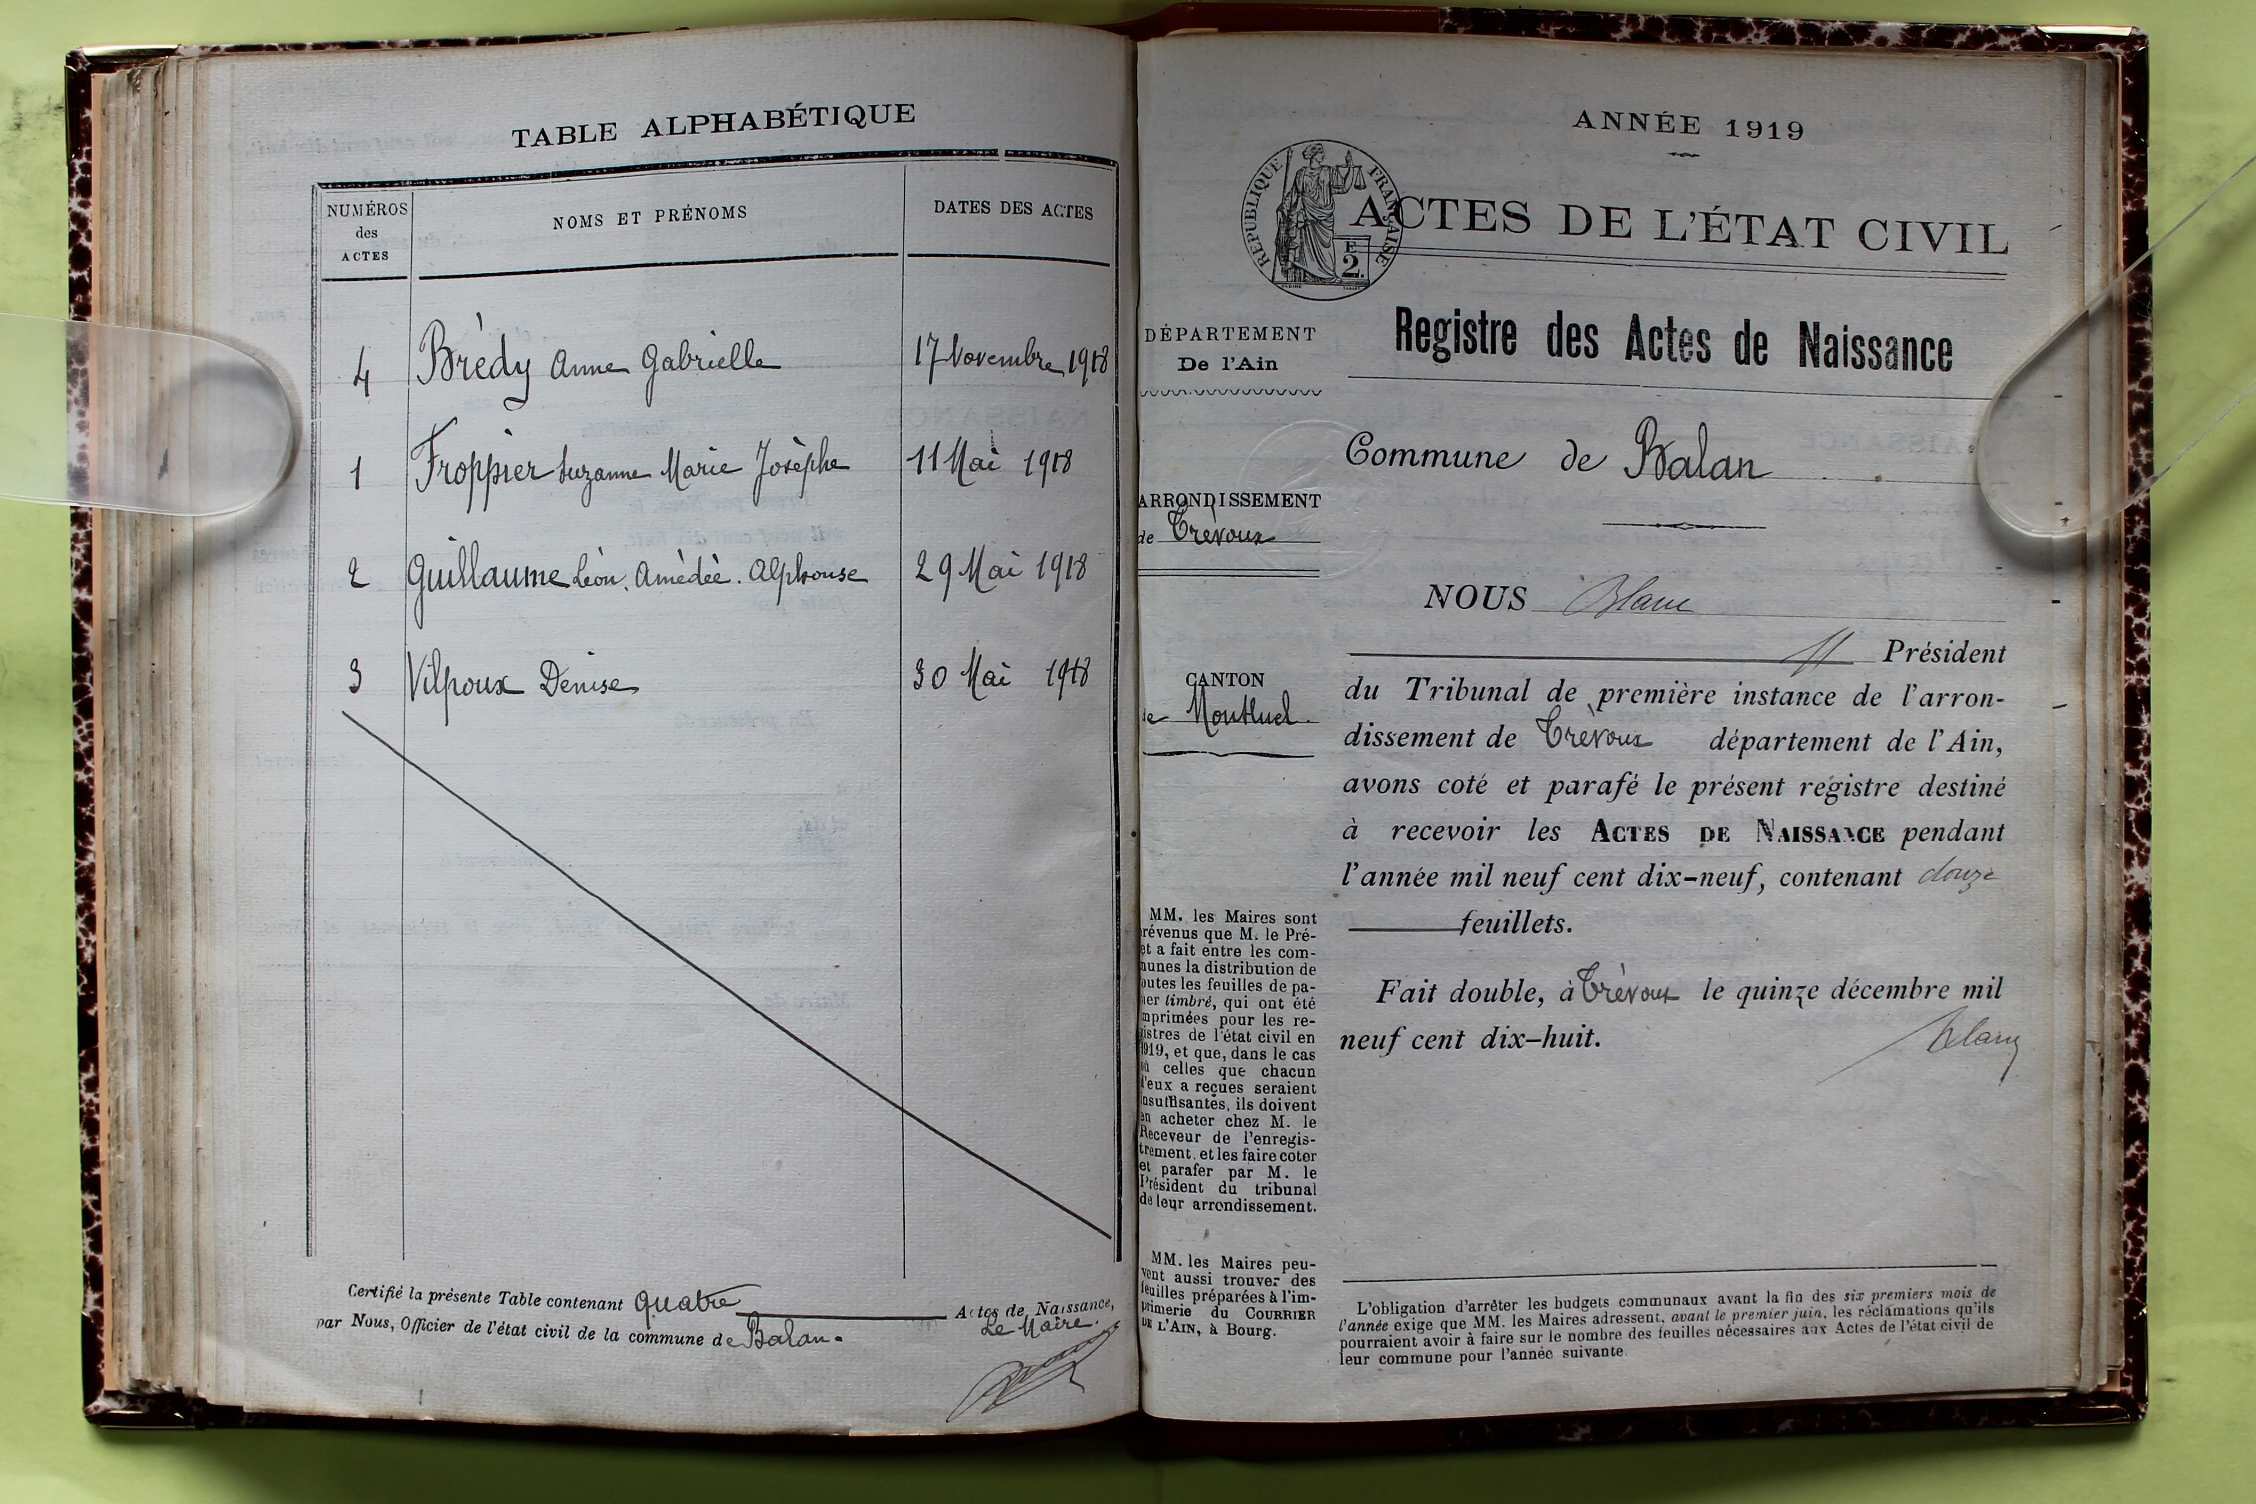 TABLE ALPHABÉTIQUE
NUMÉROS
des
ACTES
NOMS ET PRÉNOMS
DATES DES ACTES
4 Brèdy Anne Gabrielle 17 Novembre 1918
1 Froppier Suzanne Marie Josèphe 11 Mai 1918
2 Guillaume Léon. Amèdèè. Alphonse 29 Mai 1918
3 Vilpoux Denise 30 Mai 1918
Certifié la présente Table contenant quatre Actes de Naissance,
par Nous, Officier de l'état civil de la commune de Balan.
Le Maire.
ANNÉE 1919
RÉPUBLIQUE FRANÇAISE
E
2.
ACTES DE L'ÉTAT CIVIL
Registre des Actes de Naissance
DÉPARTEMENT
De l'Ain
Commune de Balan
ARRONDISSEMENT
de Trèvoux
CANTON
de Montluel.
NOUS Blanc
Président
du Tribunal de première instance de l'arron-
dissement de Trèvoux département de l'Ain,
avons coté et parafé le présent registre destiné
à recevoir les ACTES DE NAISSANCE pendant
l'année mil neuf cent dix-neuf, contenant douze
feuillets.
Fait double, à Trèvoux le quinze décembre mil
neuf cent dix-huit.
Blanc
MM. les Maires sont
révenus que M. le Pré-
et a fait entre les com-
munes la distribution de
outes les feuilles de pa-
ier timbré, qui ont été
mprimées pour les re-
istres de l'état civil en
1919, et que, dans le cas
où celles que chacun
d'eux a reçues seraient
nsuffisantes, ils doivent
en acheter chez M. le
Receveur de l'enregis-
trement, et les faire coter
et parafer par M. le
Président du tribunal
de leur arrondissement.
MM. les Maires peu-
vent aussi trouver des
feuilles préparées à l'im-
primerie du COURRIER
DE L'AIN, à Bourg.
L'obligation d'arrêter les budgets communaux avant la fin des six premiers mois de
l'année exige que MM. les Maires adressent, avant le premier juin, les réclamations qu'ils
pourraient avoir à faire sur le nombre des feuilles nécessaires aux Actes de l'état civil de
leur commune pour l'année suivante.